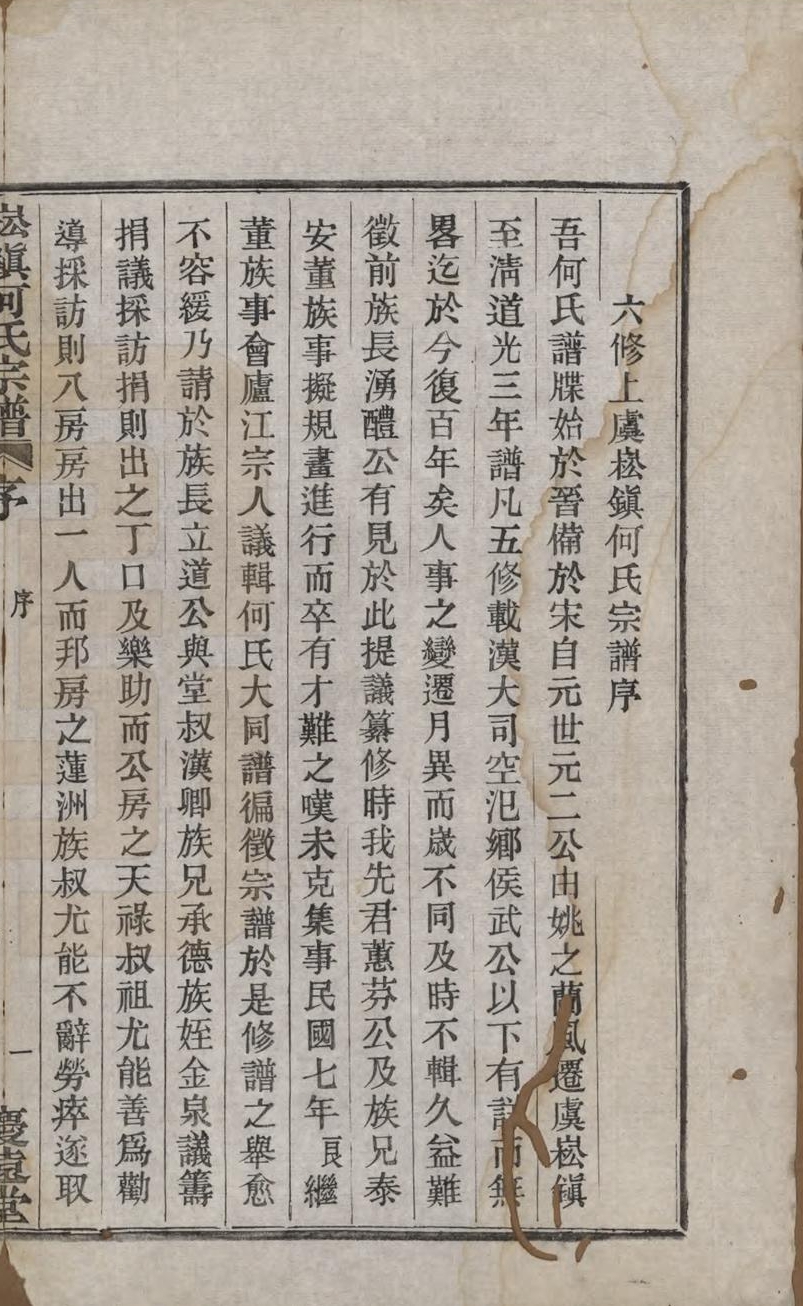 六修上虞崧鎭何氏宗譜序
吾何氏譜牒始於晉備於宋自元世元二公由姚之蘭風遷虞崧鎭
至淸道光三年譜凡五修載漢大司空氾鄉侯武公以下有詳而無
畧迄於今復百年矣人事之變遷月異而歲不同及時不輯久益難
徵前族長湧醴公有見於此提議纂修時我先君蕙芬公及族兄泰
安董族事擬規畫進行而卒有才難之嘆未克集事民國七年良繼
董族事會廬江宗人議輯何氏大同譜徧徵宗譜於是修譜之舉愈
不容緩乃請於族長立道公與堂叔漢卿族兄承德族姪金泉議籌
捐議採訪捐則出之丁口及樂助而公房之天祿叔祖尤能善爲勸
導採訪則八房房出一人而邦房之蓮洲族叔尤能不辭勞瘁遂取
崧鎭何氏宗譜 序 序 一 慶遠堂